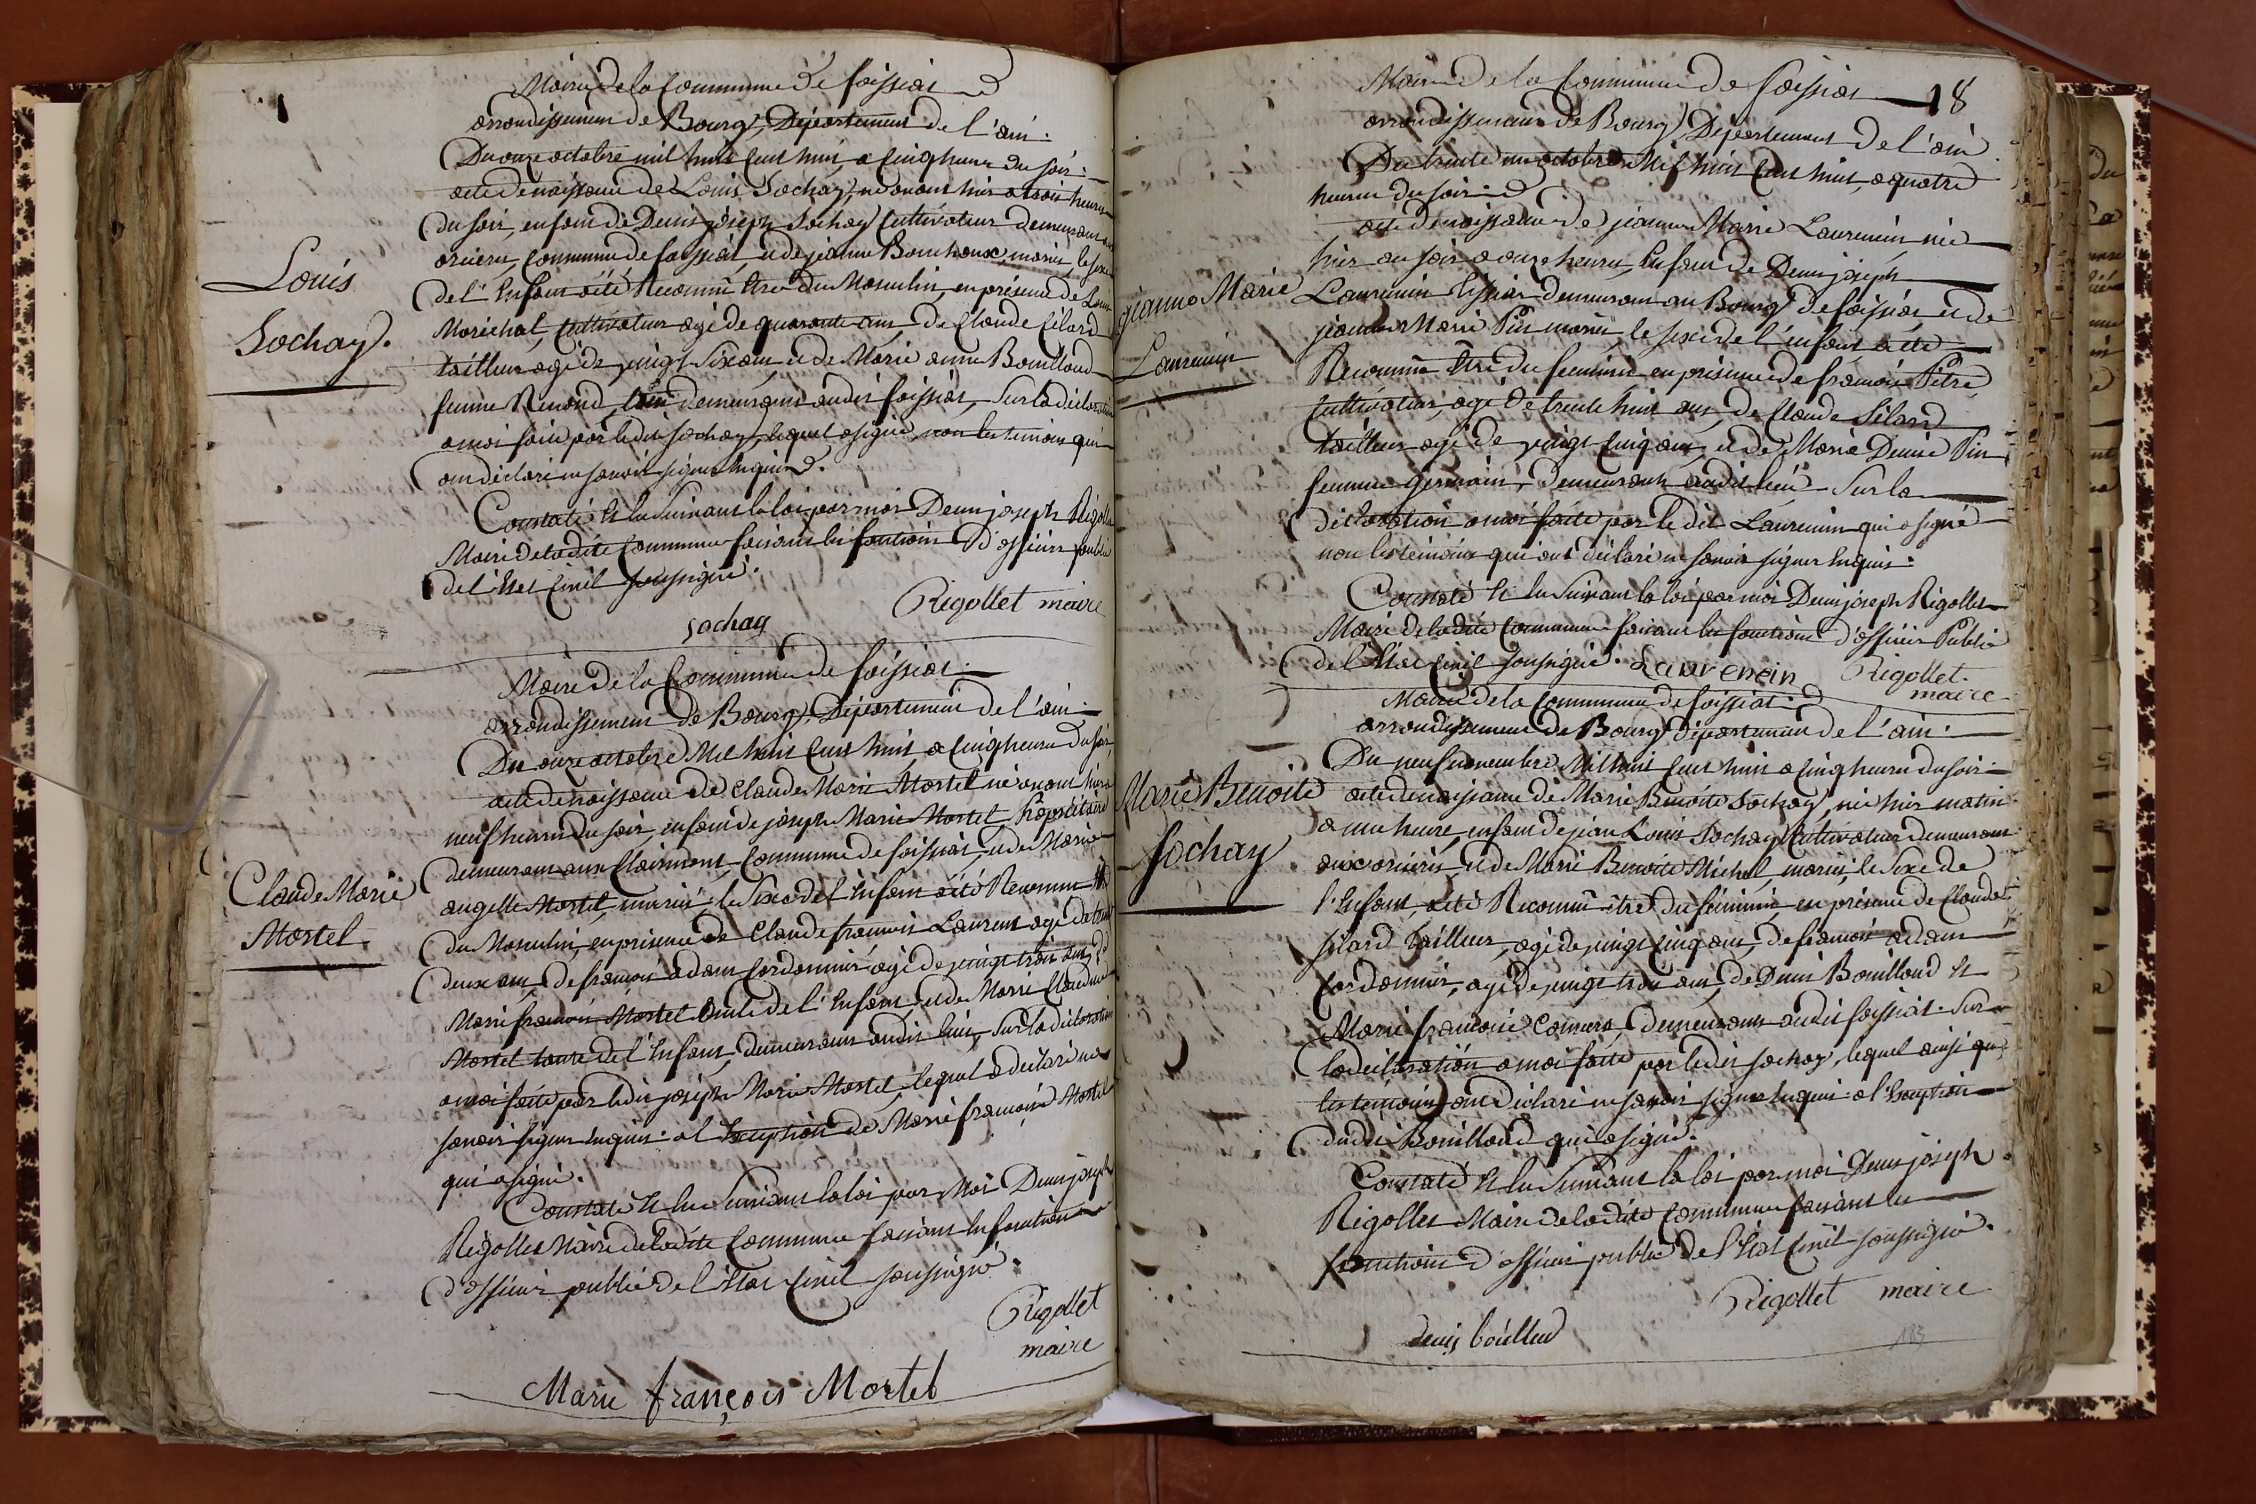 Mairie de la Commune de foissiat
arrondissement de Bourg, Département de l'ain.
Du onze octobre mil huit Cent huit a Cinq heures du soir.
acte de naissance de Louis Sochay, né avant hier a trois heures
du soir, enfant de Denis joseph Sochay Cultivateur demeurant
commune de foissiat, et de jeanne Bonhoure, mariés, le sexe
Louis
de l'Enfant a été Reconnu être du Masculin, en présence de Louis
Maréchal, Cultivateur agé de quarante ans, de Claude Silard
Sochay.
tailleur agé de vingt Six ans et de Marie anne Bouilloud
femme Renond, tous demeurans audit foissiat, Sur la déclaration
a moi faite par ledit Sochay, lequel a signé, non les témoins qui
ont déclaré ne savoir signer Enquis.
Constaté Et lu Suivant la loi par moi Denis joseph Rigollet
Maire de ladite Commune faisant les fonctions d'officier public
de l'Etat Civil soussigné.
Rigollet maire
sochay
Mairie de la Commune de foissiat.
arrondissement de Bourg, Département de l'ain.
Du onze octobre Mil huit Cent huit a Cinq heures du soir,
acte de naissance de Claude Marie Mortel né avant hier a
neuf heures du soir, enfant de joseph Marie Mortel Propriétaire
demeurant aux Clairmont, Commune de foissiat, et de Marie
Claude Marie
angelle Mortel, mariés le Sexe de l'Enfant a été Reconnu Etre
Mortel.
du Masculin, en présence de Claude françois Laurent agé de trente
deux ans, de françois adam Cordonnier agé de vingt trois ans, de
Marie françois Mortel Oncle de l'Enfant, et de Marie Claudine
Mortel tante de l'Enfant, demeurans audit lieu, Sur la déclaration
a moi faite par ledit joseph Marie Mortel, lequel a déclaré ne
savoir signer Enquis. a l'Exception de Marie françois Mortel
qui a signé.
Constaté Et lu Suivant la loi par Moi Denis joseph
Rigollet Maire de ladite Commune faisant les fonctions
d'officier public de l'Etat Civil soussigné.
Rigollet
maire
Marie françois Mortel
18
Mairie de la Commune de foissiat
arrondissement de Bourg, Département de l'ain
Du trente un octobre Mil huit Cent huit, a quatre
heures du soir.
acte de naissance de jeanne Marie Laurencin née
hier au soir a onze heures, Enfant de Denis joseph
jeanne Marie
Laurencin tissier demeurant au Bourg de foissiat, et de
Laurencin
jeanne Marie Pin mariés le sexe de l'enfant a été
Reconnu Etre du feminin en présence de françois Pitre
Cultivateur, agé de trente huit ans, de Claude Silard
tailleur agé de vingt Cinq ans et de Marie Denise Pin
femme Germain, demeurans audit lieu, Sur la
déclaration a moi faite par le dit Laurencin qui a signé
non les témoins qui ont déclaré ne savoir signer Enquis.
Constaté Et lu Suivant la loi par moi Denis joseph Rigollet
Maire de ladite Commune faisant les fonctions d'officier Public
de l'Etat Civil soussigné.
Laurencin Rigollet.
maire
Mairie de la Commune de foissiat.
arrondissement de Bourg Département de l'ain.
Du neuf novembre Mil huit Cent huit a Cinq heures du soir.
Marie Benoite
acte de naissance de Marie Benoite Sochay, née hier matin
Sochay
a une heure, enfant de jean Louis Sochay Cultivateur demeurant
et de Marie Benoite Michel, mariés, le Sexe de
l'Enfant, a été Reconnu être du féminin, en présence de Claude
Silard tailleur, agé de vingt Cinq ans, de françois adam
Cordonnier, agé de vingt trois ans, de Denis Bouilloud Et
Marie françoise demeurans audit foissiat. Sur
la déclaration a moi faite par ledit Sochay, lequel ainsi que
les témoins, ont déclaré ne savoir signer Enquis a l'Exception
dudit Bouilloud qui a signé.
Constaté Et lu Suivant la loi par moi Denis joseph
Rigollet Maire de ladite Commune faisant les
fonctions d'officier public de l'Etat Civil soussigné.
Rigollet maire
denis boüilloud
183